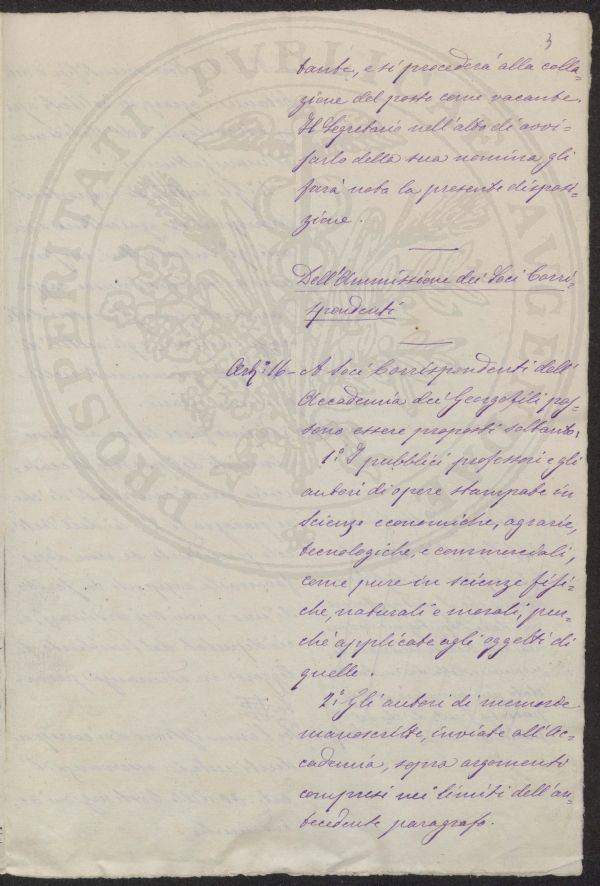 3
tante, e si procederà alla colla-
zione del posto come vacante.
Il Segretario nell'atto di avvi-
sarlo della sua nomina gli
farà nota la presente disposi-
zione.
Dell'Ammissione dei Soci Corri-
spondenti
Art.º 16 - A Soci Corrispondenti dell'
Accademia dei Georgofili pos-
sono essere proposti soltanto:
1º I pubblici professori e gli
autori di opere stampate in
scienze economiche, agrarie,
tecnologiche, e commerciali,
come pure in scienze fisi-
che, naturali e morali, pur-
chè applicate agli oggetti di
quelle.
2º Gli autori di memorie
manoscritte, inviate all'Ac-
cademia, sopra argomenti
compresi nei limiti dell'an-
tecedente paragrafo.
PROSPERITATI PVBLICAE AVGENDAE